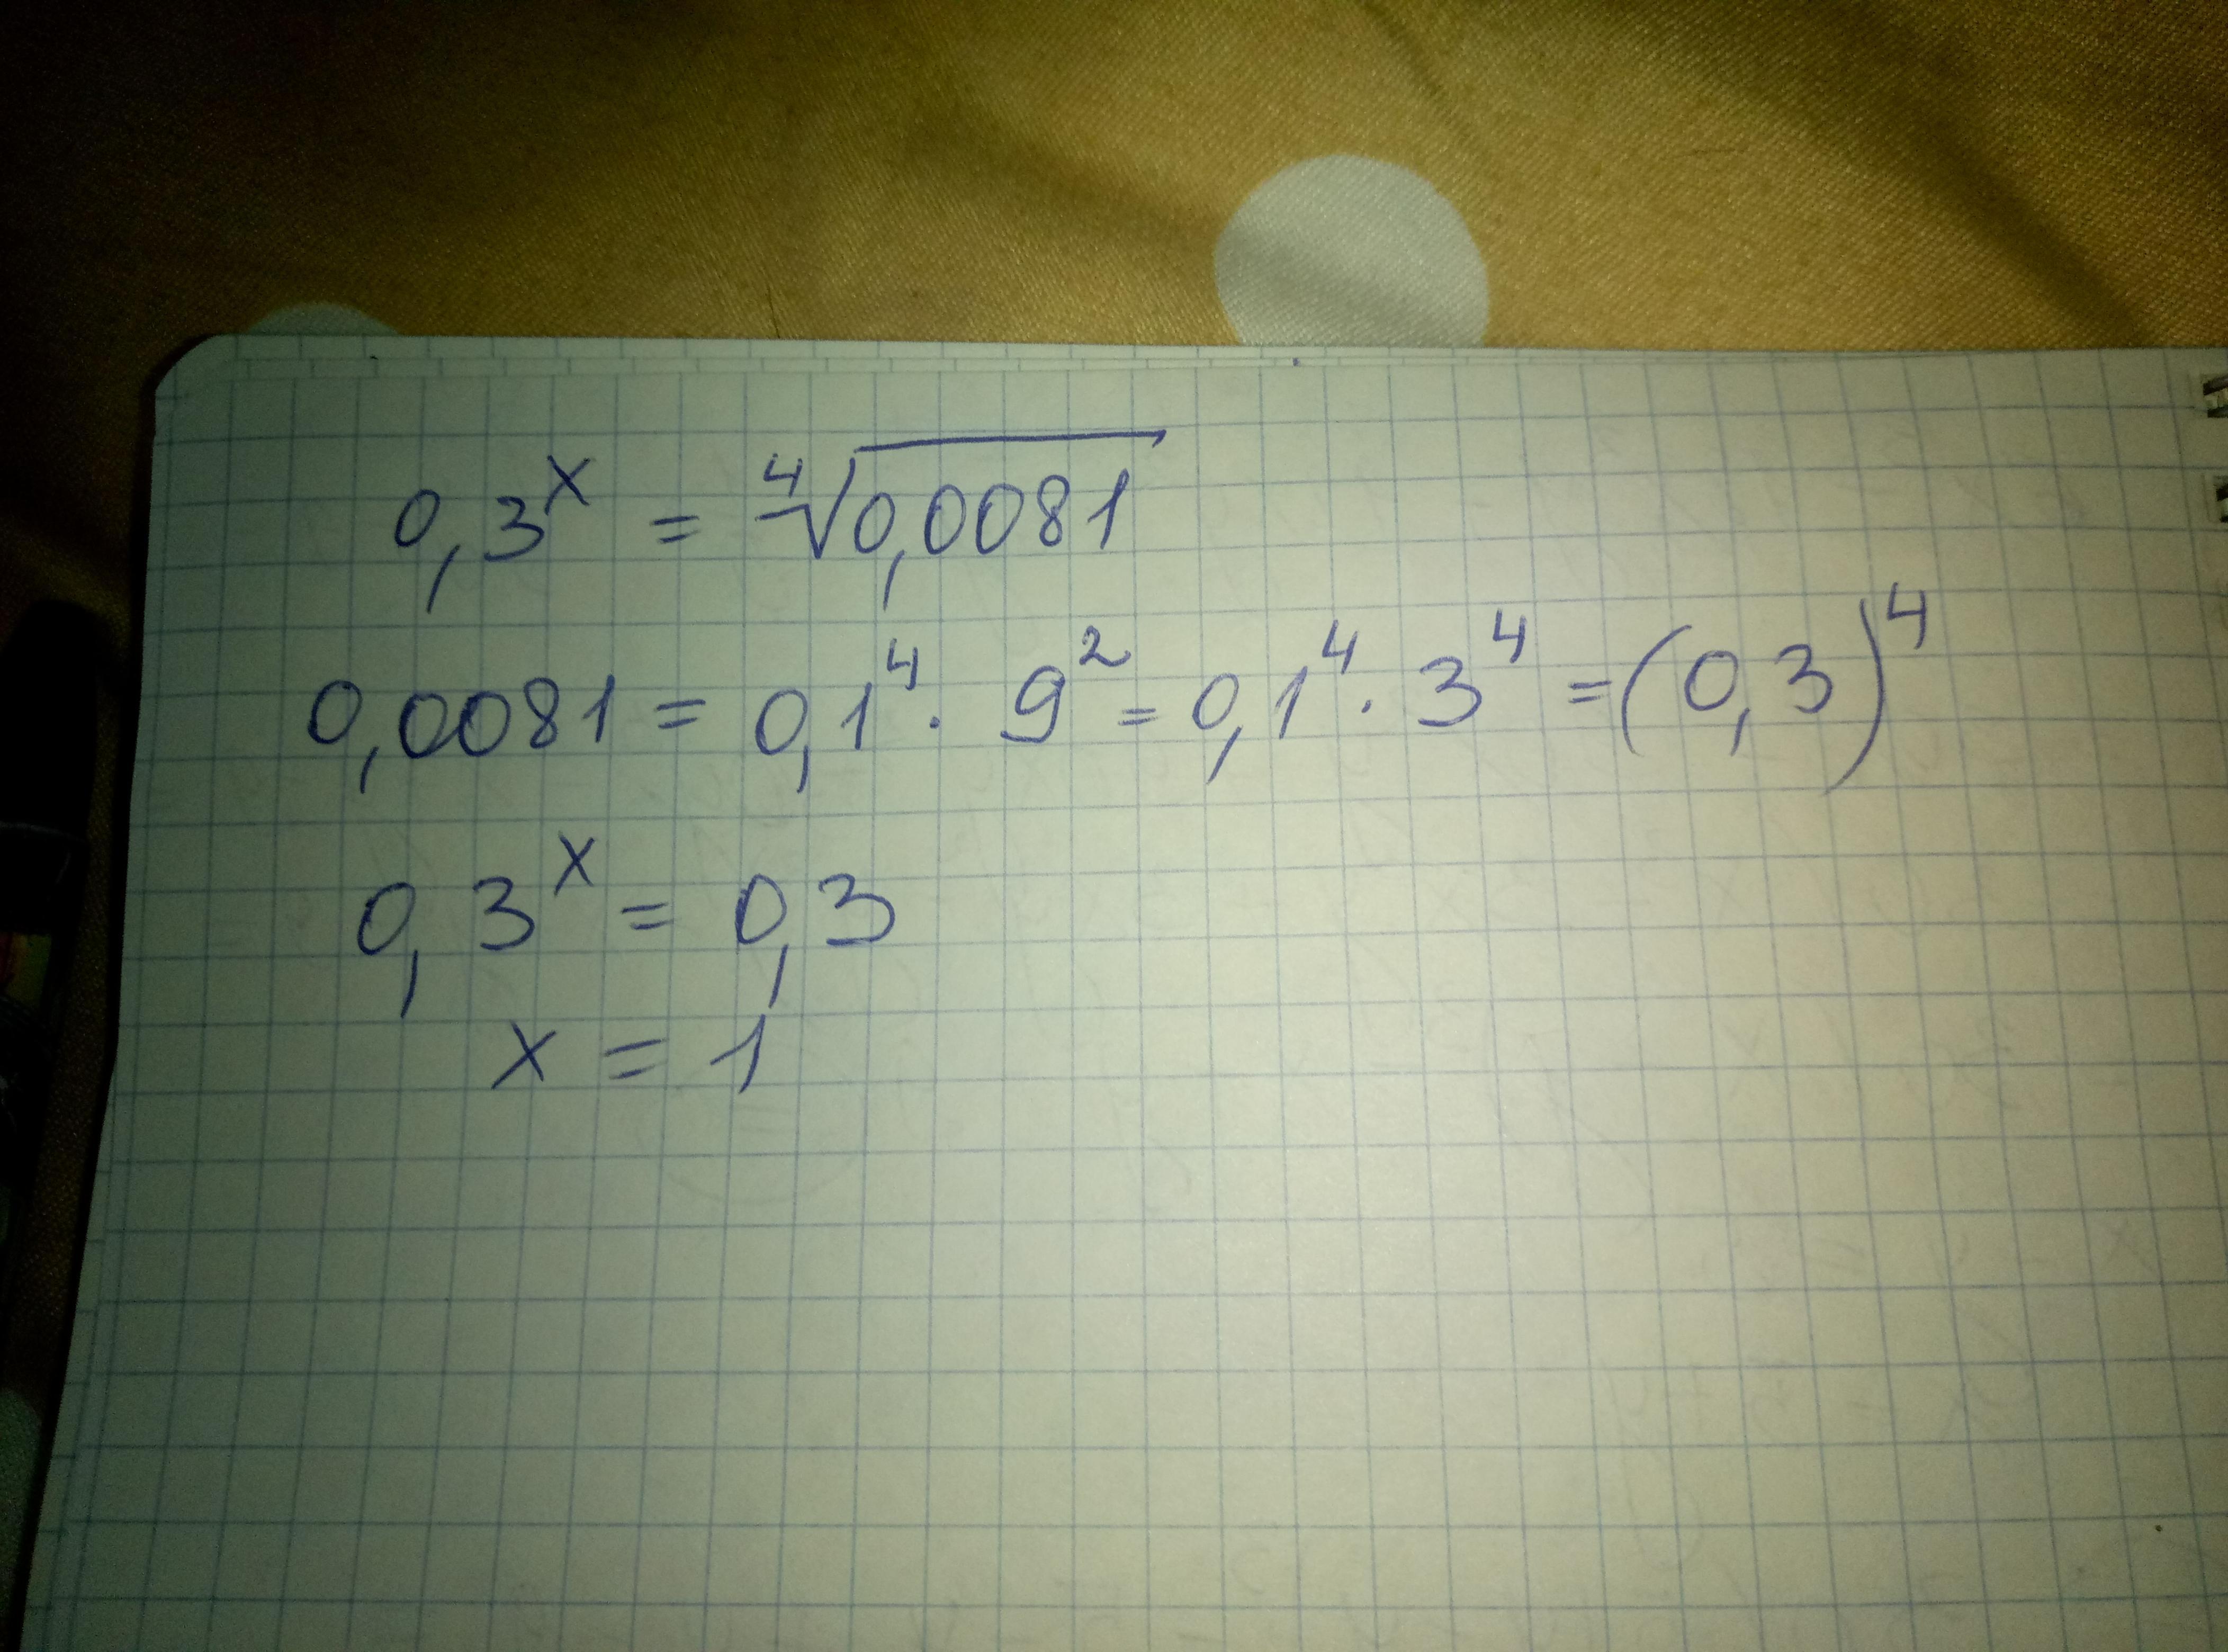 0,3^x = ⁴√0,0081
0,0081 = 0,1^4 · 9^2 = 0,1^4 · 3^4 = (0,3)^4
0,3^x = 0,3
x = 1